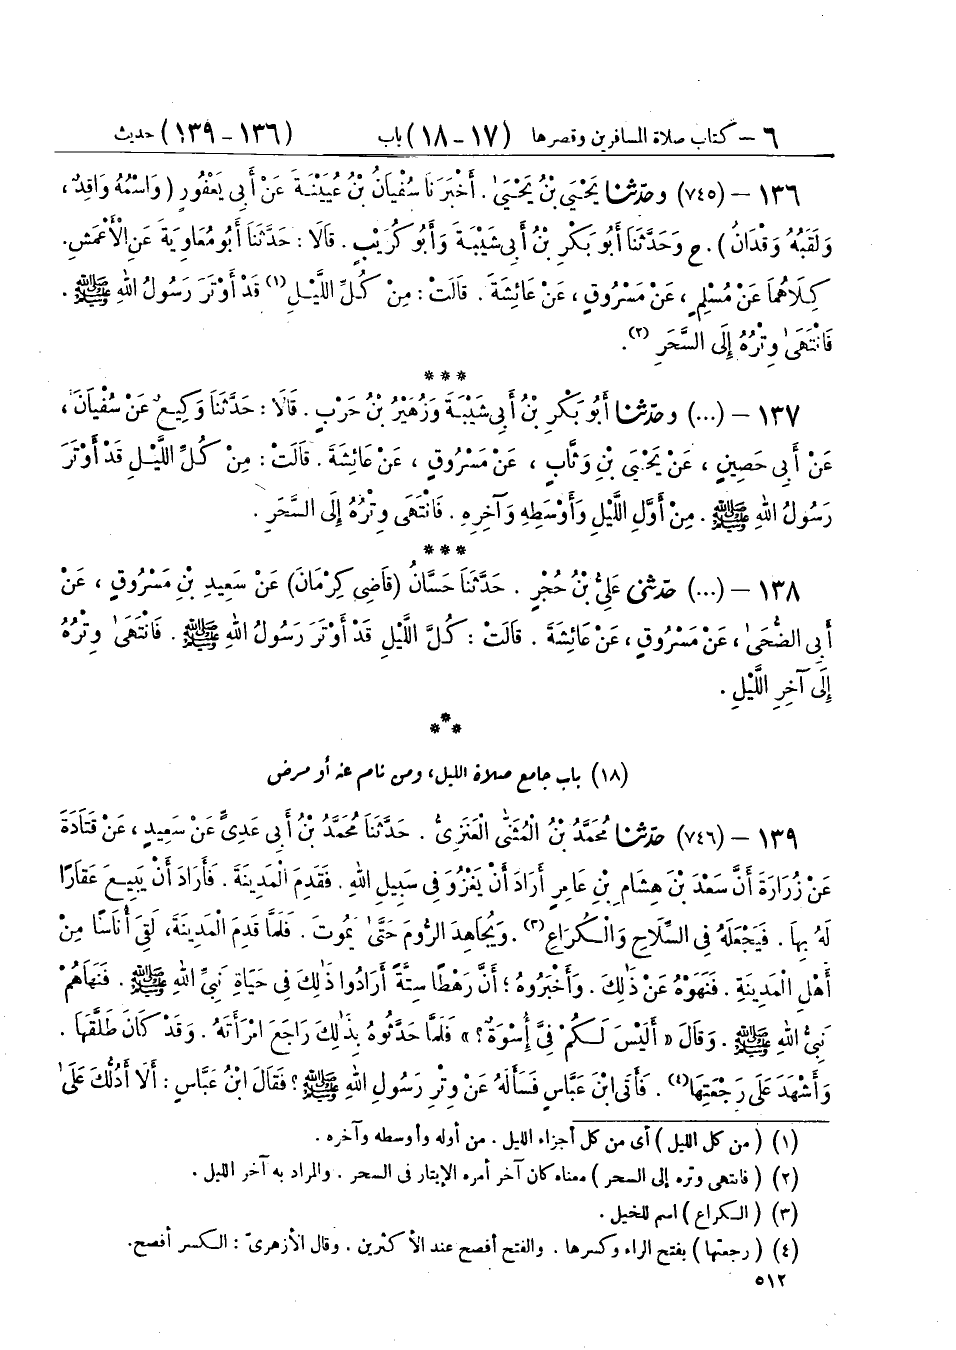 ٦ – كتاب صلاة المسافرين وقصرها (١٧ – ١٨) باب (١٣٦ – ١٣٩) حديث
١٣٦ – (٧٤٥) وحَدَّثَنَا يَحْيَى بْنُ يَحْيَىٰ. أَخْبَرَنَا سُفْيَانُ بْنُ عُيَيْنَةَ عَنْ أَبِي يَعْفُورٍ (وَاسْمُهُ وَاقِدٌ،
وَلَقَبُهُ وَقْدَانُ). ح وَحَدَّثَنَا أَبُو بَكْرِ بْنُ أَبِي شَيْبَةَ وَأَبُو كُرَيْبٍ. قَالَا: حَدَّثَنَا أَبُو مُعَاوِيَةَ عَنِ الْأَعْمَشِ.
كِلَاهُمَا عَنْ مُسْلِمٍ، عَنْ مَسْرُوقٍ، عَنْ عَائِشَةَ. قَالَتْ: مِنْ كُلِّ اللَّيْلِ(١) قَدْ أَوْتَرَ رَسُولُ اللهِ ﷺ.
فَانْتَهَىٰ وِتْرُهُ إِلَى السَّحَرِ(٢).
***
١٣٧ – (...) وحَدَّثَنَا أَبُو بَكْرِ بْنُ أَبِي شَيْبَةَ وَزُهَيْرُ بْنُ حَرْبٍ. قَالَا: حَدَّثَنَا وَكِيعٌ عَنْ سُفْيَانَ،
عَنْ أَبِي حَصِينٍ، عَنْ يَحْيَىٰ بْنِ وَثَّابٍ، عَنْ مَسْرُوقٍ، عَنْ عَائِشَةَ. قَالَتْ: مِنْ كُلِّ اللَّيْلِ قَدْ أَوْتَرَ
رَسُولُ اللهِ ﷺ. مِنْ أَوَّلِ اللَّيْلِ وَأَوْسَطِهِ وَآخِرِهِ. فَانْتَهَى وِتْرُهُ إِلَى السَّحَرِ.
***
١٣٨ – (...) حَدَّثَنِي عَلِيُّ بْنُ حُجْرٍ. حَدَّثَنَا حَسَّانُ (قَاضِي كِرْمَانَ) عَنْ سَعِيدِ بْنِ مَسْرُوقٍ، عَنْ
أَبِي الضُّحَىٰ، عَنْ مَسْرُوقٍ، عَنْ عَائِشَةَ. قَالَتْ: كُلَّ اللَّيْلِ قَدْ أَوْتَرَ رَسُولُ اللهِ ﷺ. فَانْتَهَىٰ وِتْرُهُ
إِلَى آخِرِ اللَّيْلِ.
***
(١٨) باب جامع صلاة الليل، ومن نام عنه أو مرض
١٣٩ – (٧٤٦) حَدَّثَنَا مُحَمَّدُ بْنُ الْمُثَنَّى الْعَنَزِيُّ. حَدَّثَنَا مُحَمَّدُ بْنُ أَبِي عَدِيٍّ عَنْ سَعِيدٍ، عَنْ قَتَادَةَ
عَنْ زُرَارَةَ أَنَّ سَعْدَ بْنَ هِشَامِ بْنِ عَامِرٍ أَرَادَ أَنْ يَغْزُوَ فِي سَبِيلِ اللهِ. فَقَدِمَ الْمَدِينَةَ. فَأَرَادَ أَنْ يَبِيعَ عَقَارًا
لَهُ بِهَا. فَيَجْعَلَهُ فِي السِّلَاحِ وَالْكُرَاعِ(٣). وَيُجَاهِدَ الرُّومَ حَتَّىٰ يَمُوتَ. فَلَمَّا قَدِمَ الْمَدِينَةَ، لَقِيَ أُنَاسًا مِنْ
أَهْلِ الْمَدِينَةِ. فَنَهَوْهُ عَنْ ذَٰلِكَ. وَأَخْبَرُوهُ؛ أَنَّ رَهْطًا سِتَّةً أَرَادُوا ذَٰلِكَ فِي حَيَاةِ نَبِيِّ اللهِ ﷺ. فَنَهَاهُمْ
نَبِيُّ اللهِ ﷺ. وَقَالَ «أَلَيْسَ لَكُمْ فِيَّ أُسْوَةٌ؟» فَلَمَّا حَدَّثُوهُ بِذَٰلِكَ رَاجَعَ امْرَأَتَهُ. وَقَدْ كَانَ طَلَّقَهَا.
وَأَشْهَدَ عَلَى رَجْعَتِهَا(٤). فَأَتَى ابْنَ عَبَّاسٍ فَسَأَلَهُ عَنْ وِتْرِ رَسُولِ اللهِ ﷺ؟ فَقَالَ ابْنُ عَبَّاسٍ: أَلَا أَدُلُّكَ عَلَىٰ
(١) (من كل الليل) أى من كل أجزاء الليل. من أوله وأوسطه وآخره.
(٢) (فانتهى وتره إلى السحر) معناه كان آخر أمره الإيتار فى السحر. والمراد به آخر الليل.
(٣) (الكراع) اسم للخيل.
(٤) (رجعتها) بفتح الراء وكسرها. والفتح أفصح عند الأكثرين. وقال الأزهرىّ: الكسر أفصح.
٥١٢